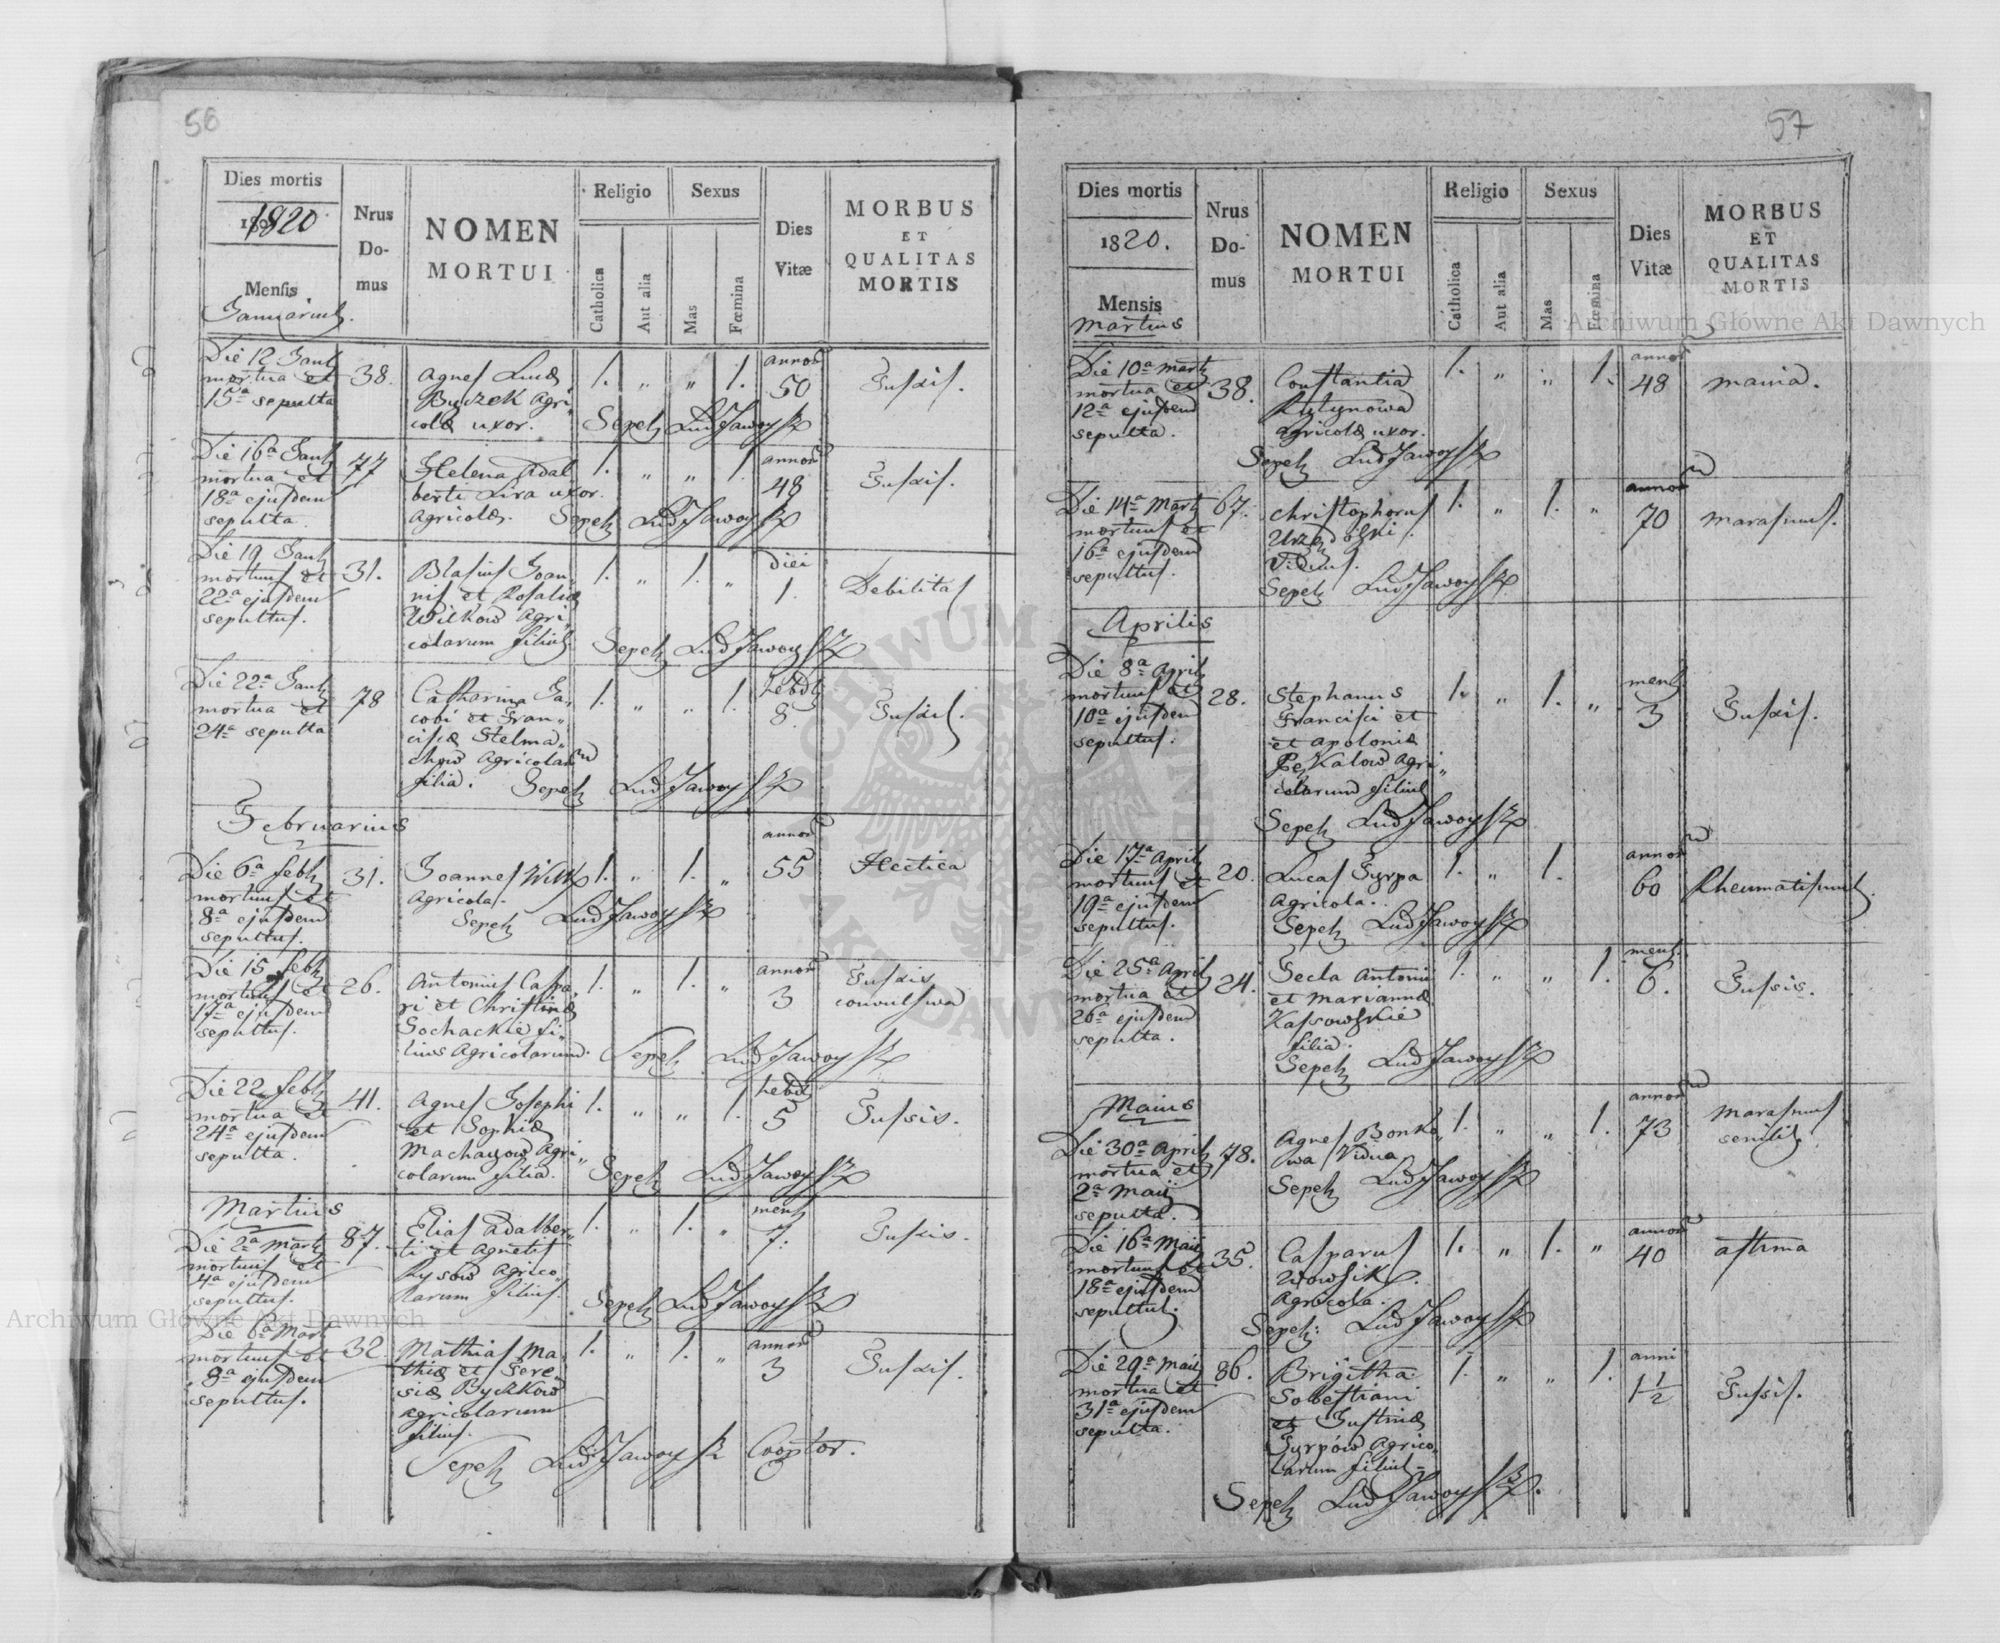 56
Dies mortis
1820
Mensis
Januarius.
Nrus
Do-
mus
NOMEN
MORTUI
Religio
Catholica
Aut alia
Sexus
Mas
Fœmina
Dies
Vitæ
MORBUS
ET
QUALITAS
MORTIS
Die 12 Janu
mortua et
15ª sepulta
38.
Agnes Lucæ
Byczek Agri„
colæ uxor.
1. „ „ 1.
annor
50
Tussis.
Sepel Lud Jaworski
Die 16ª Janu
mortua et
18ª ejusdem
sepulta.
77
Helena Adal
berti Lira uxor.
Agricolæ.
1. „ „ 1.
annor
48
Tussis.
Sepel Lud Jaworski
Die 19 Janu
mortuus et
22ª ejusdem
sepultus.
31.
Blasius Joan„
nis et Rosaliæ
Wilkow Agri„
colarum filius
1. „ 1. „
diei
1.
Debilitas
Sepel Lud Jaworski
Die 22ª Janu
mortua et
24ª sepulta
78
Catharina Ja„
cobi et Fran„
ciscæ Stelma„
chow Agricolar
filia.
1. „ „ 1.
hebd
8.
Tussis.
Sepel Lud Jaworski
Februarius
Die 6ª febr
mortuus et
8ª ejusdem
sepultus.
31.
Joannes Wilk
Agricola.
1. „ 1. „
annor
55
Hectica
Sepel Lud Jaworski
Die 15 febr
mortuus et
17ª ejusdem
sepultus.
26.
Antonius Caspa„
ri et Christinæ
Sochackie fi„
lius Agricolarum.
1. „ 1. „
annor
3
Tussis
convulsiva
Sepel Lud Jaworski
Die 22 febr
mortua et
24ª ejusdem
sepulta.
41.
Agnes Josephi
et Sophiæ
Agri„
colarum filia.
1. „ „ 1.
hebd
5
Tussis.
Sepel Lud Jaworski
Martius
Die 2ª Mart
mortuus et
4ª ejusdem
sepultus.
87.
Elias Adalber„
ti et Agnetis
Rysow Agrico„
larum filius.
1. „ 1. „
mens
7.
Tussis.
Sepel Lud Jaworski
Die 6ª Mart
mortuus et
8ª ejusdem
sepultus.
32.
Mathias Ma„
thiæ et Tere„
siæ
Agricolarum
filius.
1. „ 1. „
annor
3
Tussis.
Sepel Lud Jaworski Cooptor.
57
Dies mortis
1820.
Mensis
Martius
Nrus
Do-
mus
NOMEN
MORTUI
Religio
Catholica
Aut alia
Sexus
Mas
Fœmina
Dies
Vitæ
MORBUS
ET
QUALITAS
MORTIS
Die 10ª Mart
mortua et
12ª ejusdem
sepulta.
38.
Constantia
Agricolæ uxor.
1. „ „ 1.
annor
48
mania.
Sepel Lud Jaworski
Die 14ª Mart
mortuus et
16ª ejusdem
sepultus.
67.
Christophorus
Viduus.
1. „ 1. „
annor
70
marasmus.
Sepel Lud Jaworski
Aprilis
Die 8ª April
mortuus et
10ª ejusdem
sepultus.
28.
Stephanus
Francisci et
et Apoloniæ
Agri„
colarum filius
1. „ 1. „
mens
3
Tussis.
Sepel Lud Jaworski
Die 17ª April
mortuus et
19ª ejusdem
sepultus.
20.
Lucas Syrpa
Agricola.
1. „ 1.
annor
60
Rheumatismus.
Sepel Lud Jaworski
Die 25ª April
mortua et
26ª ejusdem
sepulta.
24.
Tecla Antonii
et Mariannæ
Kassowskie
filia.
1. „ „ 1.
mens
6.
Tussis.
Sepel Lud Jaworski
Maius
Die 30ª April
mortua et
2ª Maii
sepulta.
78.
Agnes Bonko„
wa Vidua
1. „ „ 1.
annor
73
marasmus
senilis
Sepel Lud Jaworski
Die 16ª Maii
mortuus et
18ª ejusdem
sepultus.
35.
Casparus
Wowsik
Agricola.
1. „ 1. „
annor
40
asthma
Sepel: Lud Jaworski
Die 29ª Maii
mortua et
31ª ejusdem
sepulta.
86.
Brigitha
Sobestiani
et Justinæ
Syrpów Agrico„
larum
1. „ „ 1.
anni
1½
Tussis.
Sepel Lud Jaworski.
Archiwum Główne Akt Dawnych
Archiwum Główne Akt Dawnych